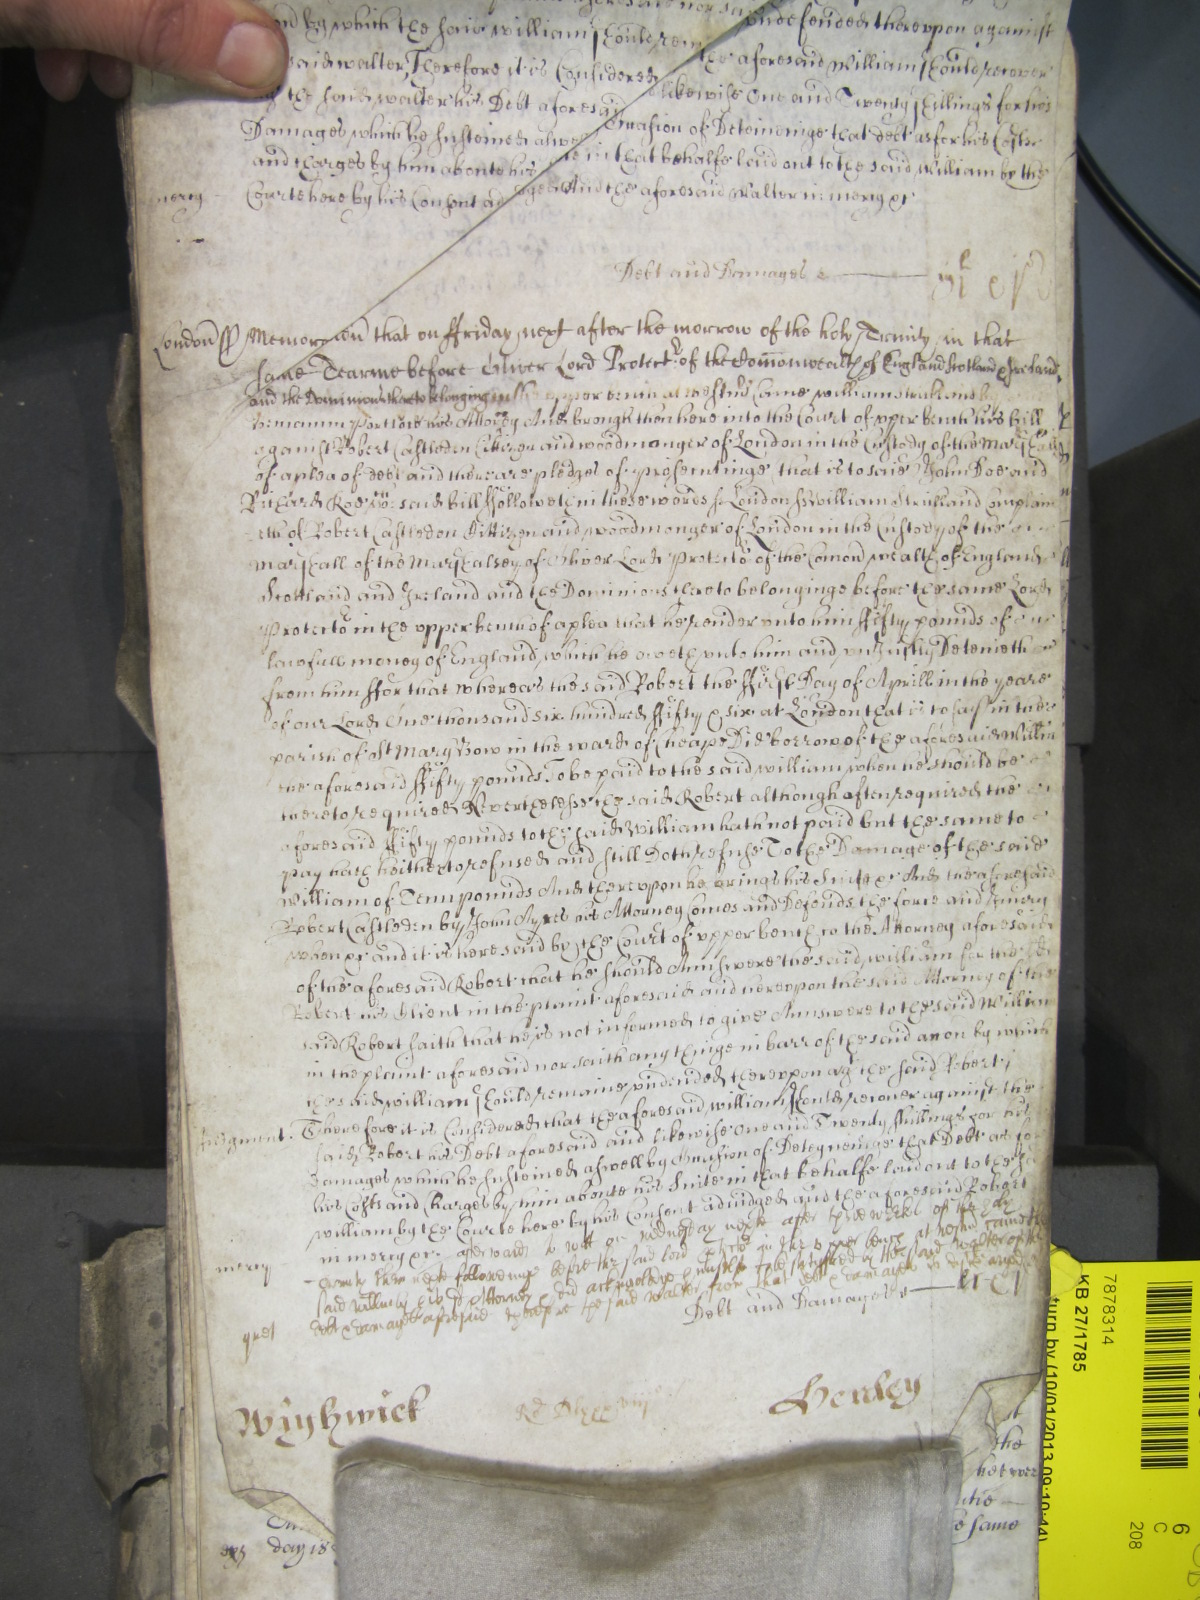 and by which the said William should rem undefended thereupon against
said Walter, Therefore it is Considered the aforesaid William should recover
the said Walter his Debt aforesaid likewise One and Twenty shillings for his
Damages which he susteined aswel occasion of Deteininge that debt as for his Costs
and charges by him aboute his in that behalfe laid out to the said William by the
mercy Courte here by his Consent ad And the aforesaid Walter in mercy &c
Debt and Damages
London ss Memor that on ffriday next after the morrow of the holy Trinity in that
same Tearme before Oliver Lord Protectr of the Comonwealth of England Scotland & Ireland
and the Dominions thereto belonging upper bench at Westmr Came William Strickland by
his Attorney And brought then here into the Court of upper bench his bill
against Robert Castleden Cittizen and woodmonger of London in the Custody of the Marshall
of a plea of debt and there are pledges of prosecutinge that is to saie John Doe and
Richard Roe which said bill ffolloweth in these words ss London ss William Strickland Complain
eth of Robert Castledon Cittizen and woodmonger of London in the Custody of the
Marshall of the Marshalsey of Oliver Lord Protector of the Comon wealth of England
Scotland and Ireland and the Dominions thereto belonginge before the same Lord
Protector in the upper bench of a plea that he render unto him ffifty pounds of
lawfull money of England which he oweth unto him and uniustly Deteineth
from him ffor that whereas the said Robert the ffirst Day of Aprill in the yeare
of our Lord One thousand six hundred ffifty & six at London that is to say in the
parish of St Mary Bow in the ward of Cheape Did borrow of the aforesaid William
the aforesaid ffifty pounds To be paid to the said William when he should be
thereto required Neverthelesse the said Robert although often required the
aforesaid ffifty pounds to the said William hath not paid but the same to
pay hath hitherto refused and still Doth refuse To the Damage of the said
William of Tenn pounds And thereupon he brings his Suite &c And the aforesaid
Robert Castleden by John Ayres his Attorney Comes and Defends the force and Iniury
when &c and it is here said by the Court of upper bench to the Attorney aforesaid
of the aforesaid Robert that he should Answere the said William for the
Robert his Client in the plaint aforesaid and thereupon the said Attorney of the
said Robert saith that he is not informed to give Answere to the said William
in the plaint aforesaid nor saith any thinge in barr of the said accon by which
the said William should remaine undefended thereupon agt the said Robert
Iudgment. Therefore it is Considered that the aforesaid William should recover against the
said Robert his Debt aforesaid and likewise One and Twenty shillings for his
Damages which he susteined aswell by Occasion of Deteyneinge that Debt as for
his Costs and Charges by him aboute his Suite in that behalfe laid out to the said
William by the Courte here by his Consent adiudged and the aforesaid Robert
mercy in mercy &c afterwards to witt on wednesday next after three weekes of the holy
then next followinge before the said lord in the upper bench at
said William by his Attorney did acknowledge himselfe satisfied by the said Walter of the
debt & damages aforesaid therefore the said Walter from that debt & damages
Debt and Damages
Wightwick Henley
the
same
day is
KB 27/1785
7878314
turn by (10/01/2013 09:10:44)
6
C
208